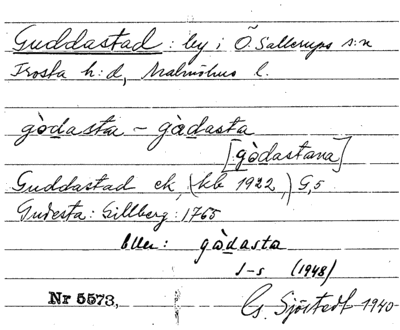 Guddastad: by i Ö. Sallerups s:n
Frosta h:d, Malmöhus l.
gòdasta – gàdasta
[gòdastana]
Guddastad ek, (kb 1922,) G,5
Gudesta: Gillberg: 1765
Eller: gòdasta
J-s (1948)
Nr 5573,
G. Sjöstedt 1940